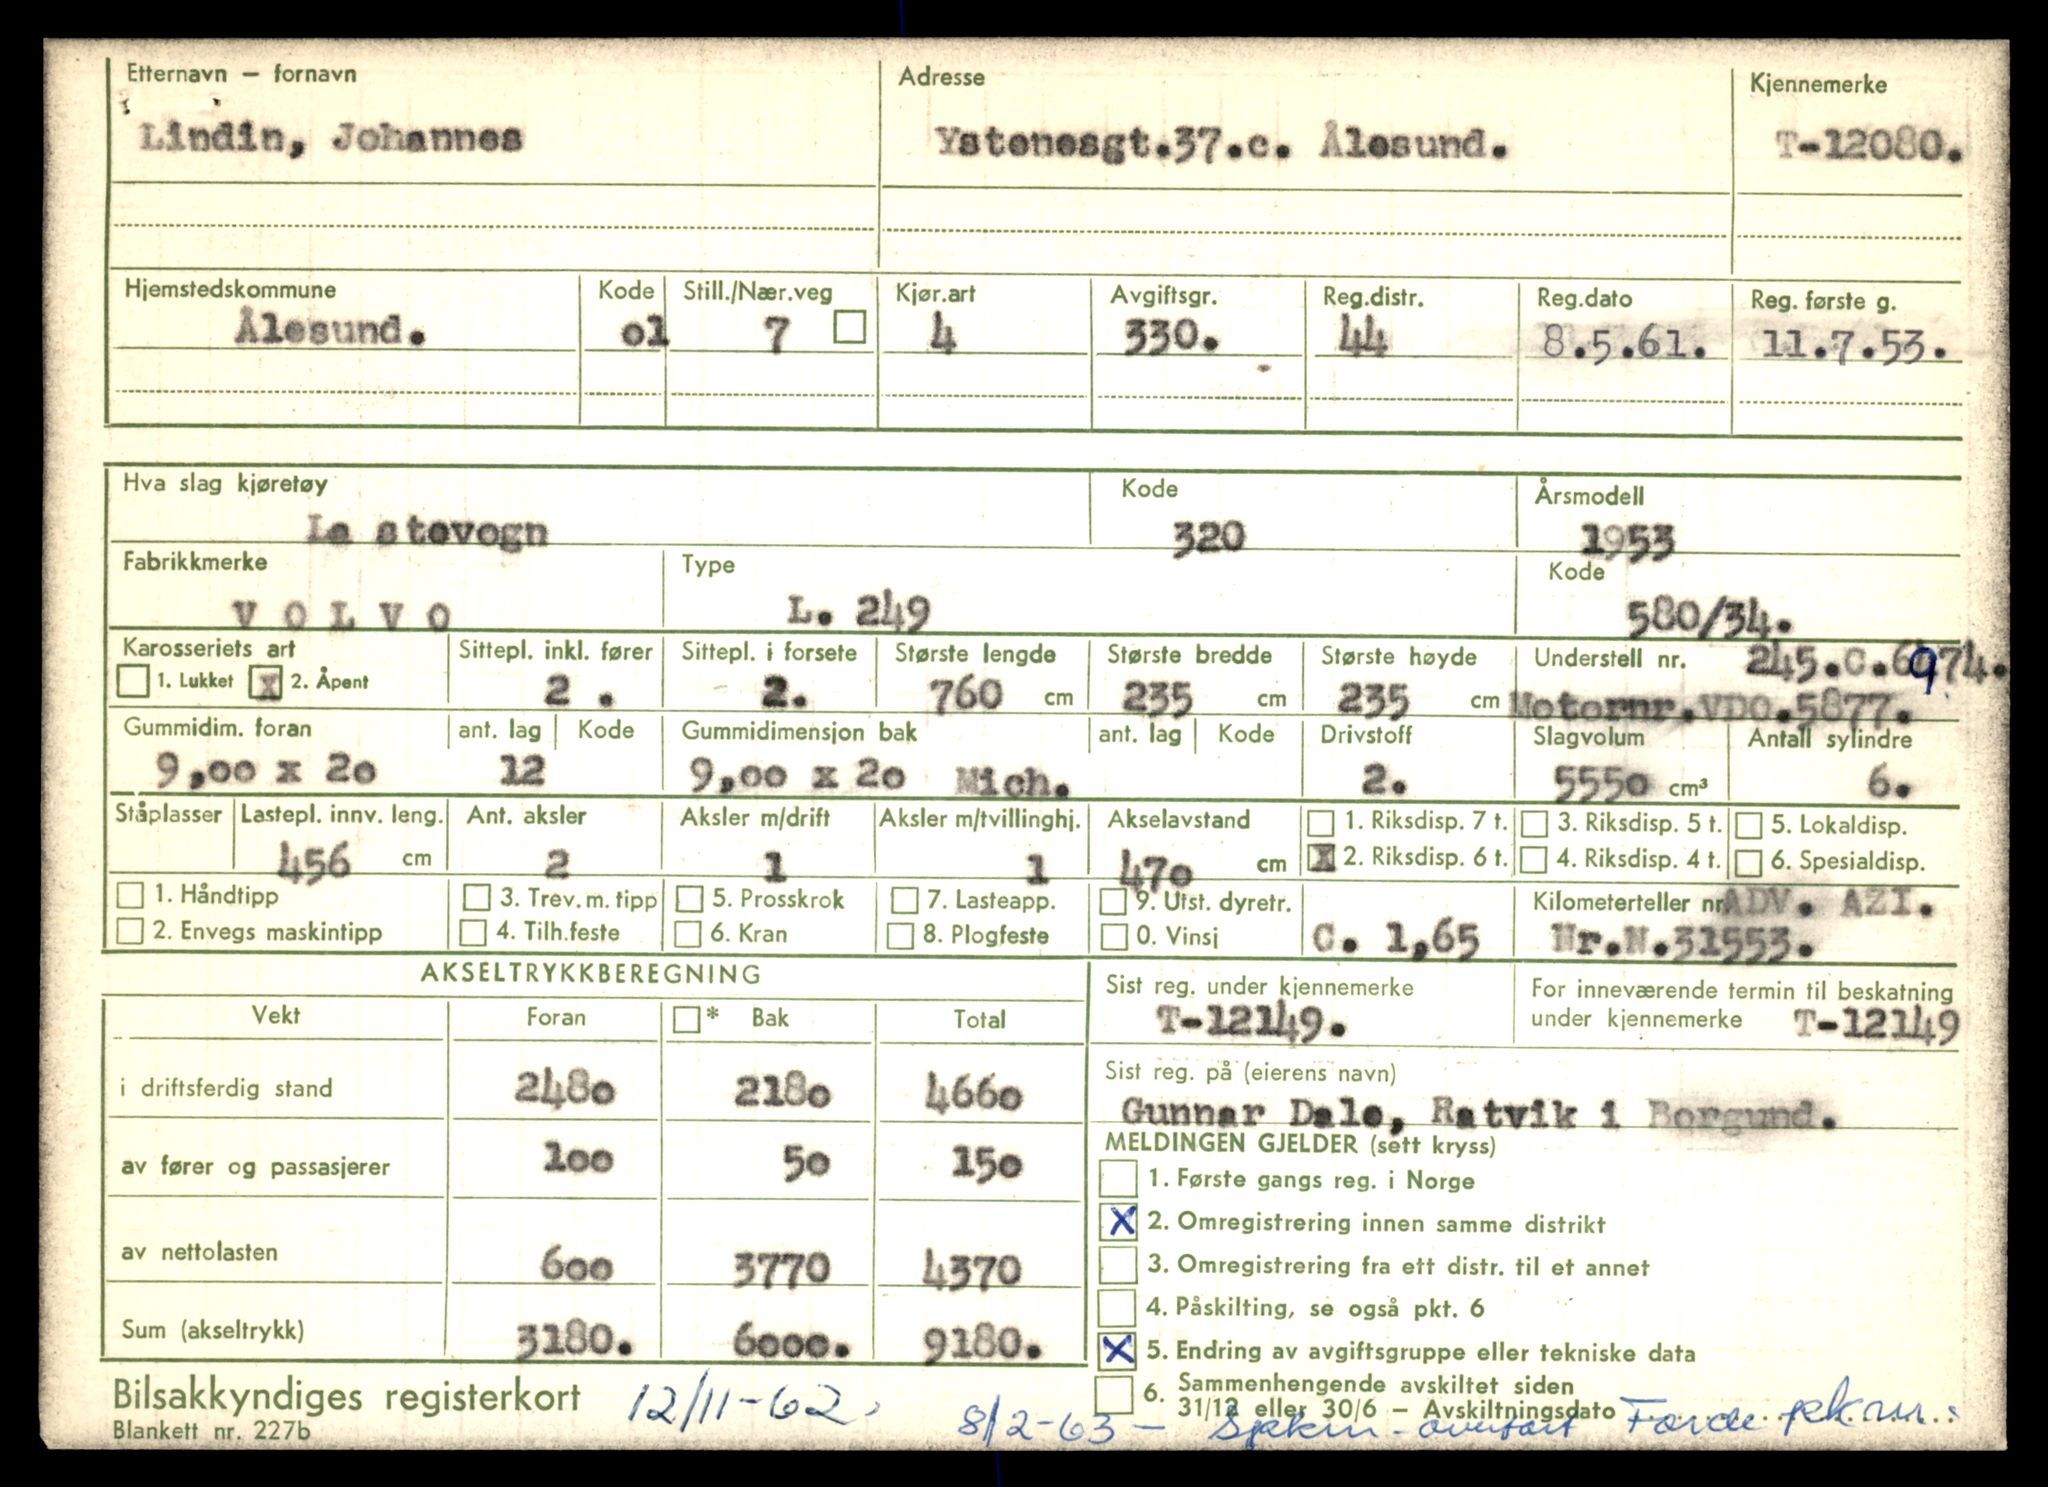 Etternavn – fornavn Adresse Kjennemerke
Lindin, Johannes Ystenesgt.37.c. Ålesund. T-12080.
Hjemstedskommune Kode Still./Nær.veg Kjør.art Avgiftsgr. Reg.distr. Reg.dato Reg. første g.
Ålesund. ol 7 4 330. 44 8.5.61. 11.7.53.
Hva slag kjøretøy Kode Årsmodell
La stevogn 320 1953
Fabrikkmerke Type Kode
V O L V O L. 249 580/34.
Karosseriets art Sittepl. inkl. fører Sittepl. i forsete Største lengde Største bredde Største høyde Understell nr. 245.C.6974.
1. Lukket X 2. Åpent 2 . 2. 760 cm 235 cm 235 cm Motornr.VDO.5877.
Gummidim. foran ant. lag Kode Gummidimensjon bak ant. lag Kode Drivstoff Slagvolum Antall sylindre
9,oo x 2o 12 9,oo x 2o Mich. 2. 555o cm³ 6.
Ståplasser Lastepl. innv. leng. Ant. aksler Aksler m/drift Aksler m/tvillinghj. Akselavstand 1. Riksdisp. 7 t. 3. Riksdisp. 5 t. 5. Lokaldisp.
456 cm 2 1 1 47o cm X 2. Riksdisp. 6 t. 4. Riksdisp. 4 t. 6. Spesialdisp.
1. Håndtipp 3. Trev. m. tipp 5. Prosskrok 7. Lasteapp. 9. Utst. dyretr. Kilometerteller nr ADV. AZI.
2. Envegs maskintipp 4. Tilh.feste 6. Kran 8. Plogfeste 0. Vinsj C. 1,65 Nr.N.31553.
AKSELTRYKKBEREGNING Sist reg. under kjennemerke For inneværende termin til beskatning
Vekt Foran * Bak Total T-12149. under kjennemerke T-12149
i driftsferdig stand 248o 218o 466o Sist reg. på (eierens navn)
Gunnar Dale, Ratvik i Borgund.
MELDINGEN GJELDER (sett kryss)
av fører og passasjerer loo 5o 15o 1. Første gangs reg. i Norge
X 2. Omregistrering innen samme distrikt
av nettolasten 6oo 3770 4370 3. Omregistrering fra ett distr. til et annet
4. Påskilting, se også pkt. 6
Sum (akseltrykk) 3180. 6ooo. 9180. X 5. Endring av avgiftsgruppe eller tekniske data
6. Sammenhengende avskiltet siden
31/12 eller 30/6 – Avskiltningsdato
Bilsakkyndiges registerkort 12/11-62.
Blankett nr. 227b 8/2-63 –